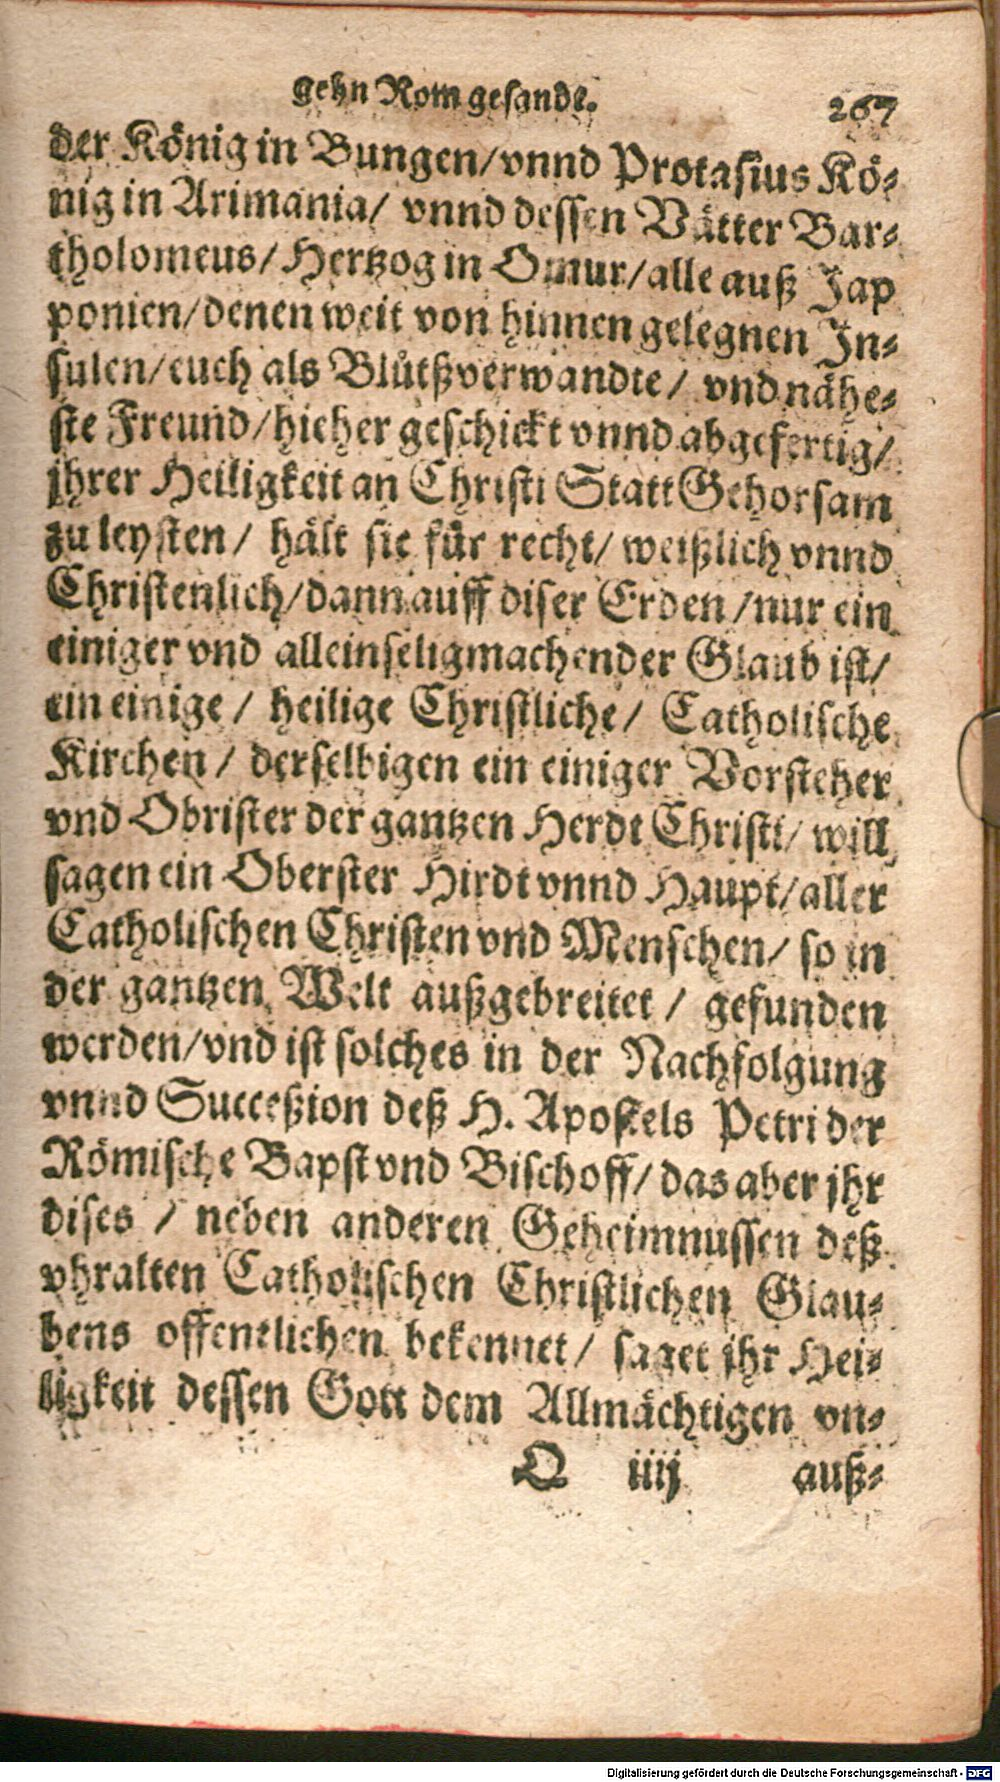 gehn Rom gesandt. 267
der König in Bungen/ vnnd Protasius Kö-
nig in Arimania/ vnnd dessen Vätter Bar-
tholomeus/ Hertzog in Omur/ alle auß Jap
ponien/ denen weit von hinnen gelegnen In-
sulen/ euch als Blůtßverwandte/ vnd nähe-
ste Freund/ hieher geschickt vnnd abgefertig/
jhrer Heiligkeit an Christi Statt Gehorsam
zu leysten/ hält sie für recht/ weißlich vnnd
Christenlich/ dann auff diser Erden/ nur ein
einiger vnd alleinseligmachender Glaub ist/
ein einige/ heilige Christliche/ Catholische
Kirchen/ derselbigen ein einiger Vorsteher
vnd Obrister der gantzen Herdt Christi/ will
sagen ein Oberster Hirdt vnnd Haupt/ aller
Catholischen Christen vnd Menschen/ so in
der gantzen Welt außgebreitet/ gefunden
werden/ vnd ist solches in der Nachfolgung
vnnd Succeßion deß H. Apostels Petri der
Römische Bapst vnd Bischoff/ das aber jhr
dises/ neben anderen Geheimnussen deß
vhralten Catholischen Christlichen Glau-
bens offentlichen bekennet/ saget jhr Hei-
ligkeit dessen Gott dem Allmächtigen vn-
Q iiij auß-
Digitalisierung gefördert durch die Deutsche Forschungsgemeinschaft - DFG